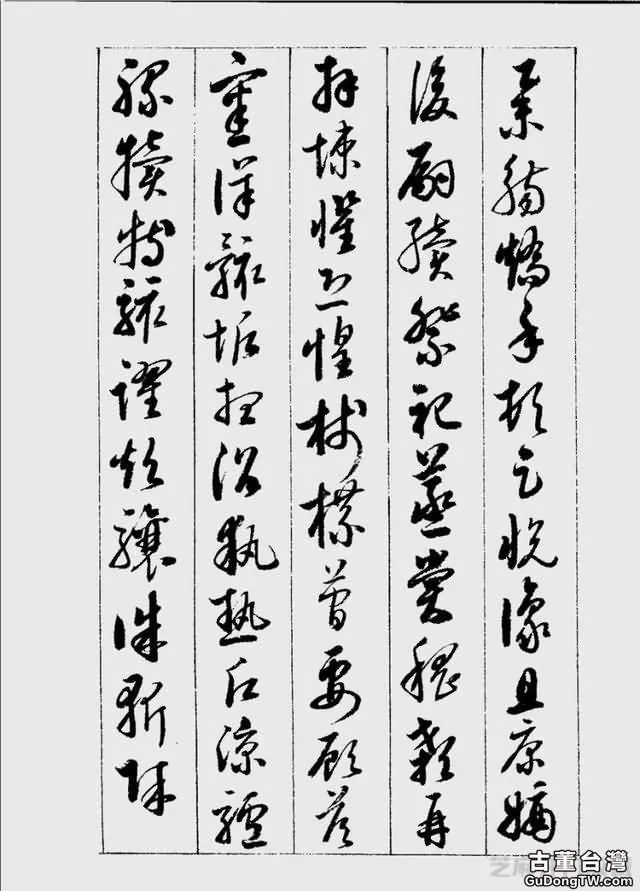 舉觴矯手頓足悅豫且康嫡
後嗣續祭祀蒸嘗稽顙再
拜悚懼恐惶牋牒簡要顧答
審詳骸垢想浴執熱願涼驢
騾犢特駭躍超驤誅斬賊
古董台灣
GuDongTW.com